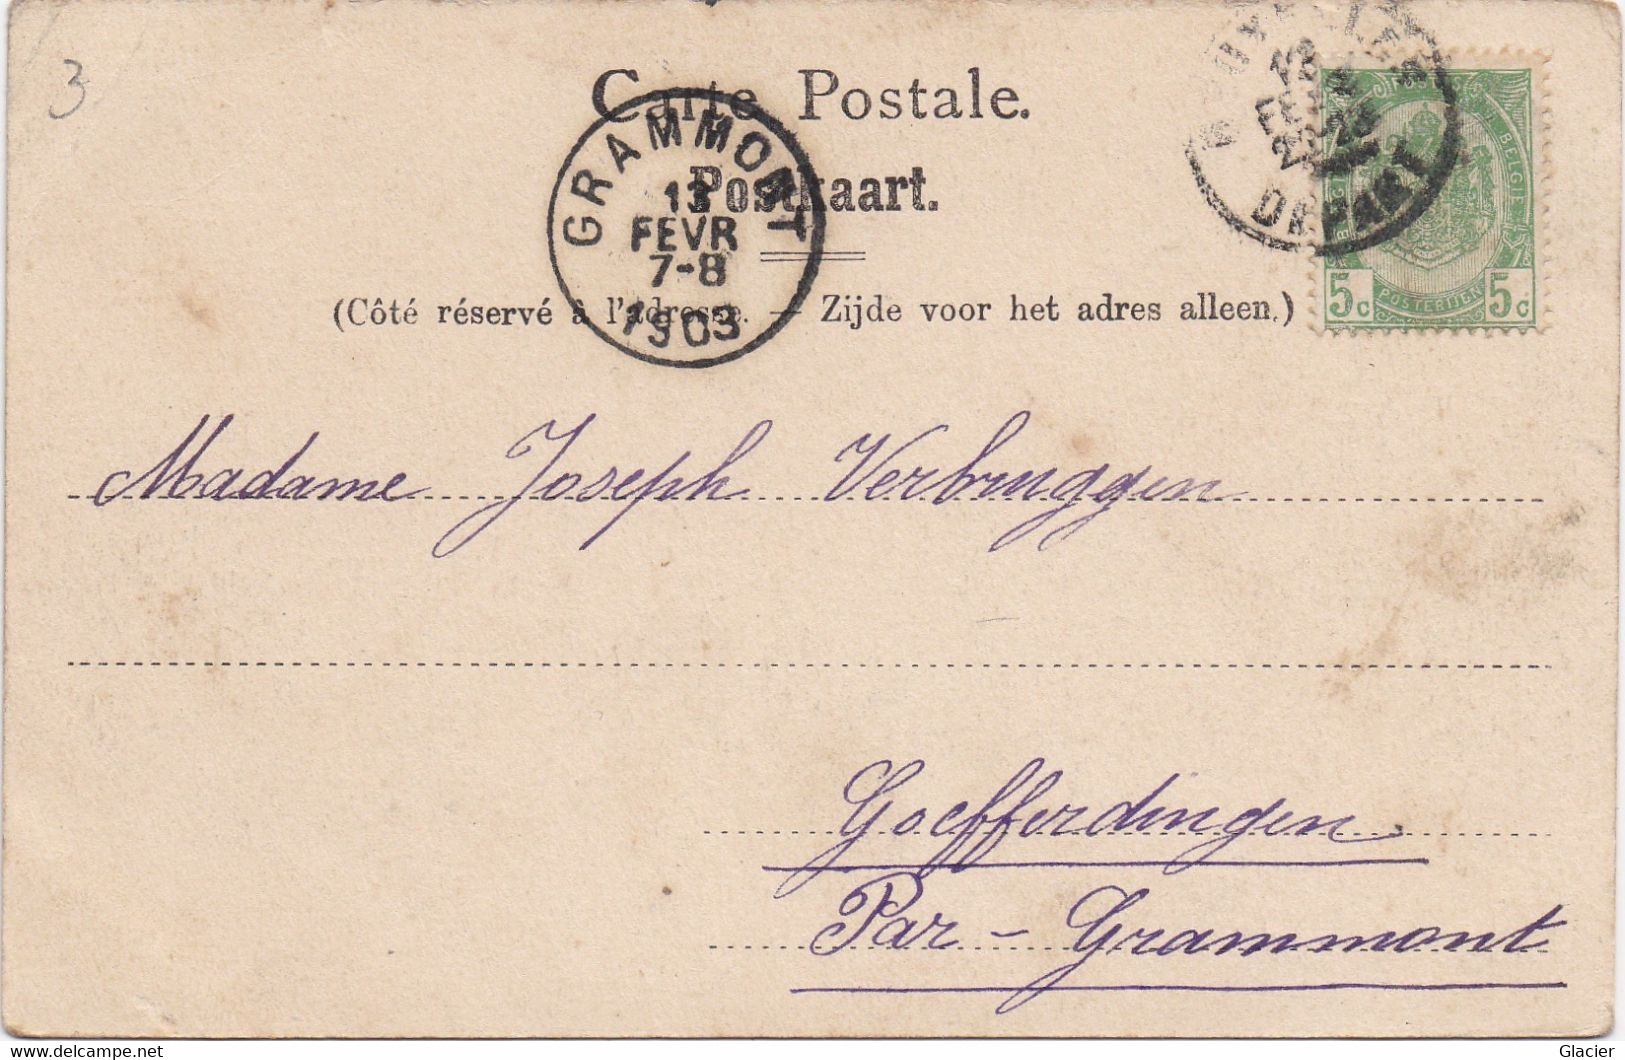 3
Carte Postale.
Postkaart.
(Côté réservé à l'adresse. — Zijde voor het adres alleen.)
GRAMMONT
13
FEVR
7-8
1903
DEPART
BELGIE
POSTERIJEN
5c 5c
Madame Joseph Verbruggen
Goefferdingen
Par - Grammont
www.delcampe.net
Glacier